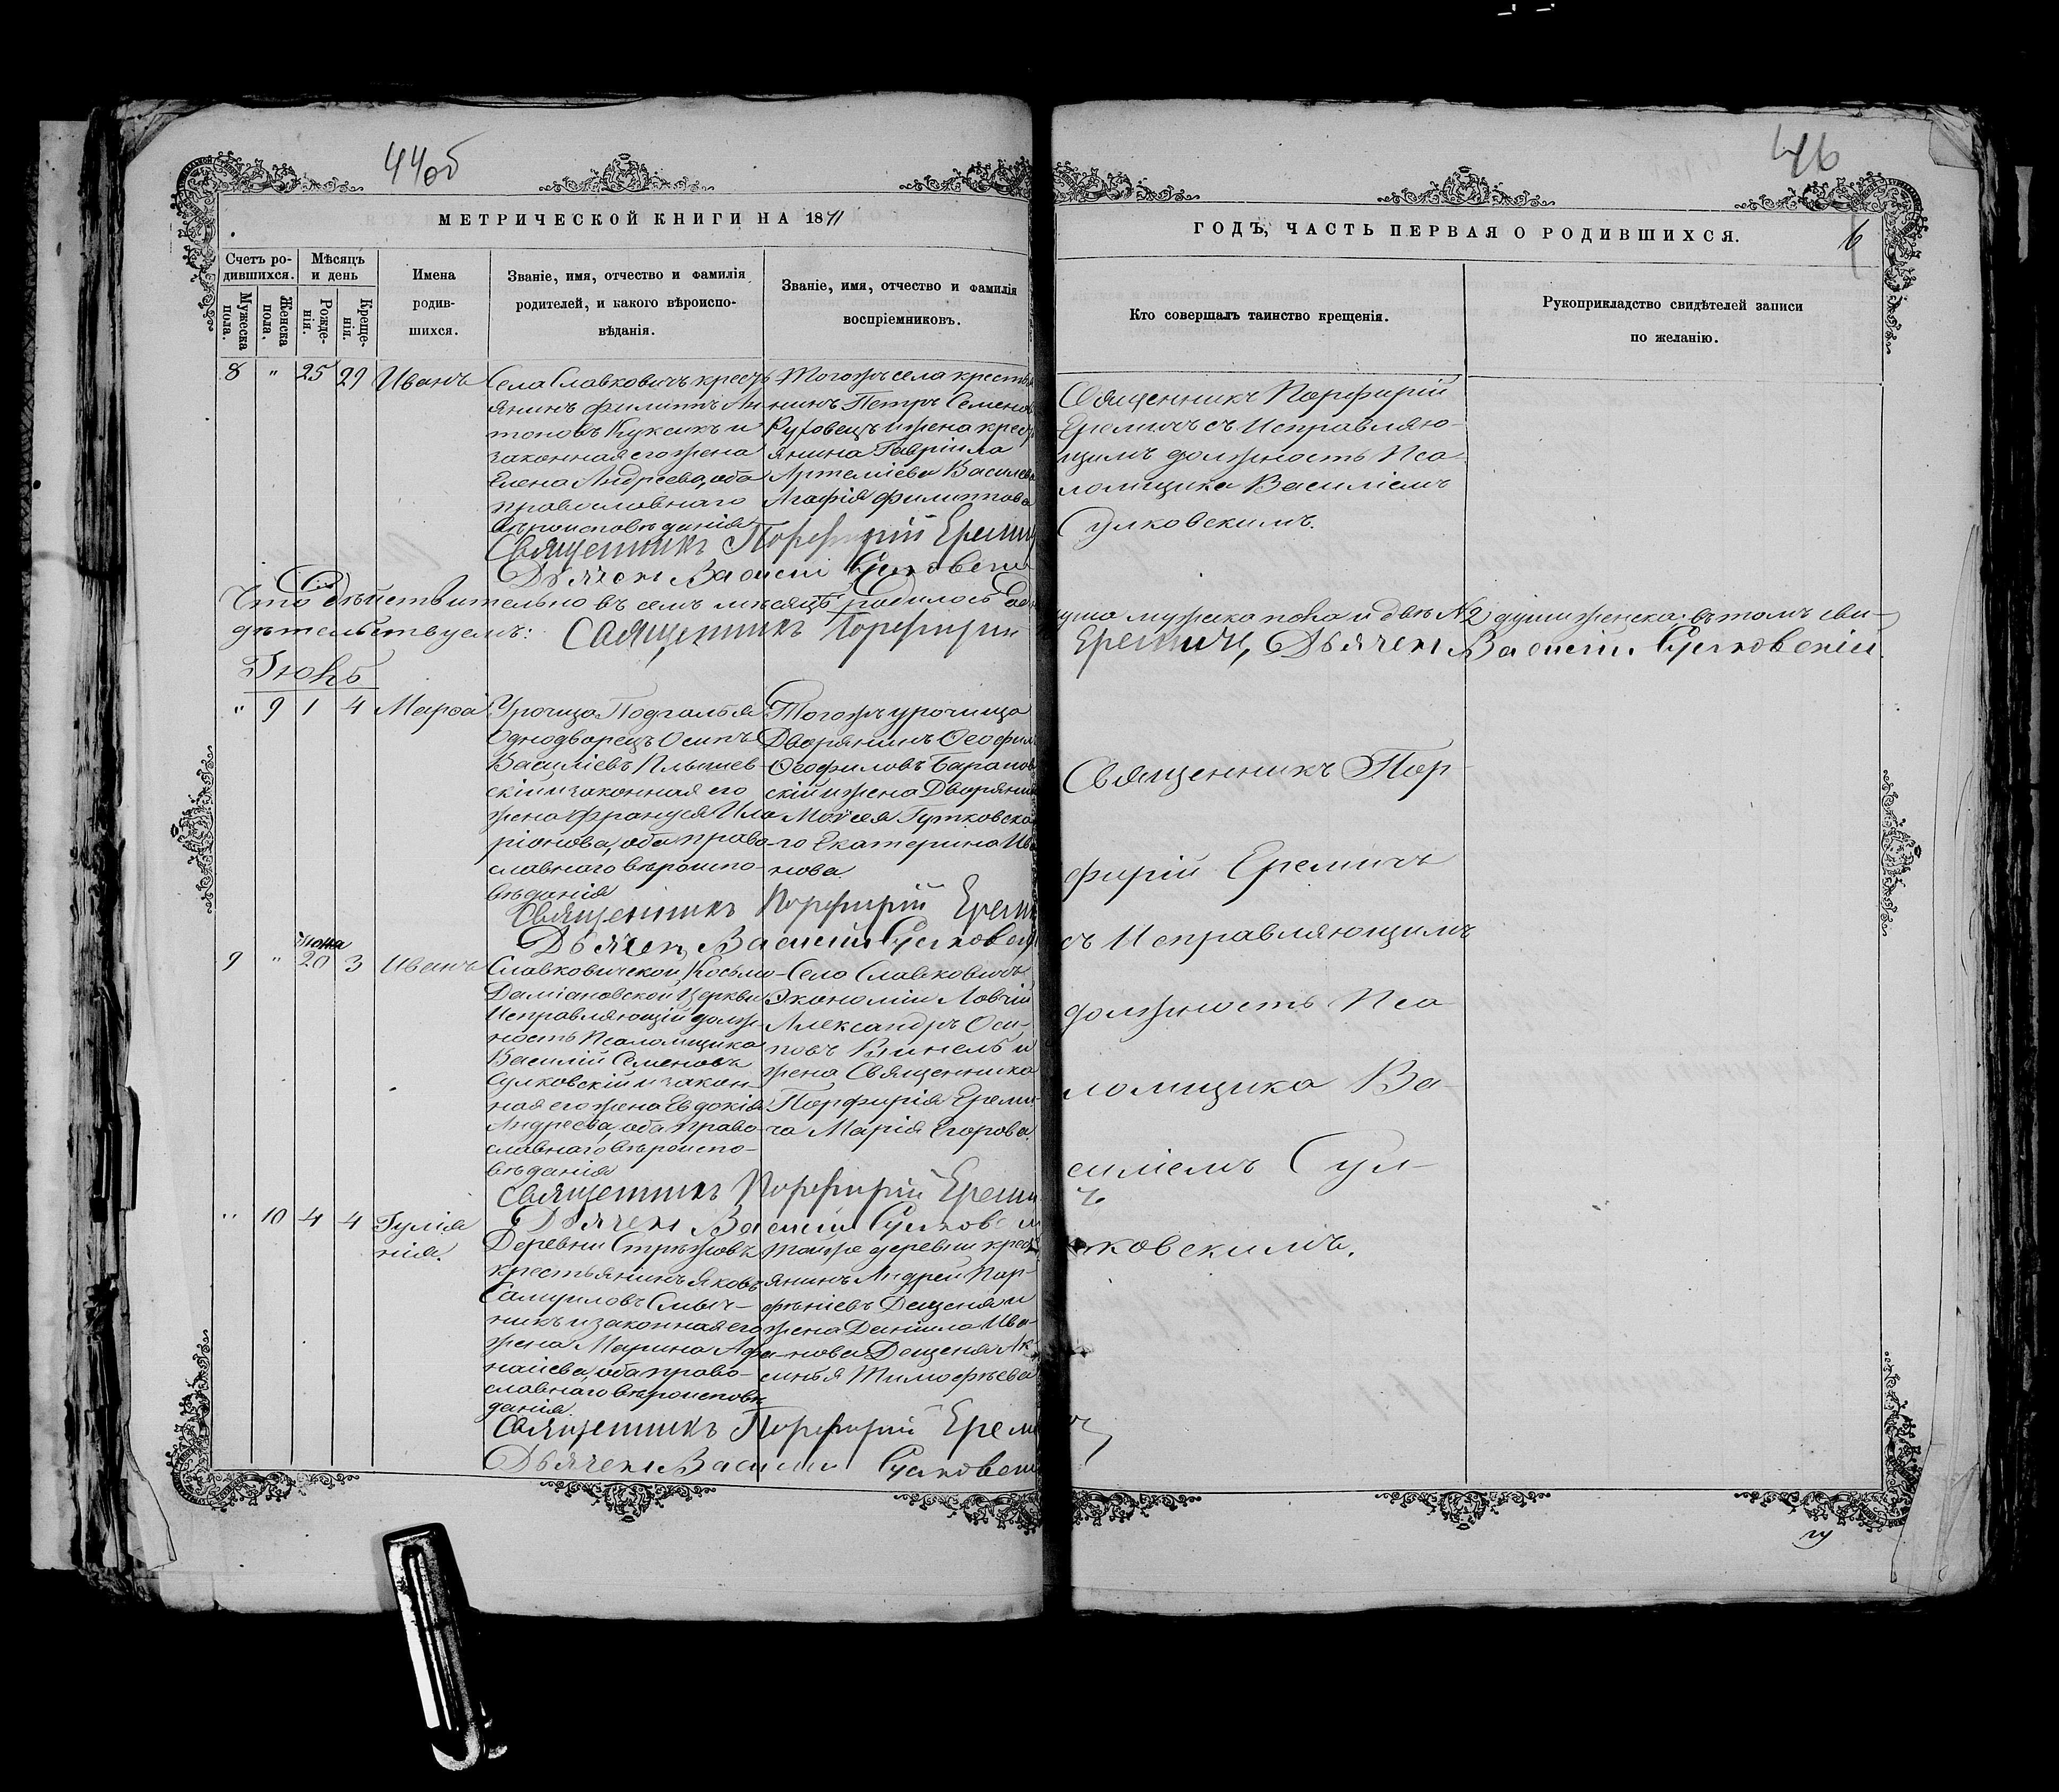 44об
46
МЕТРИЧЕСКОЙ КНИГИ НА 1871
ГОДЪ, ЧАСТЬ ПЕРВАЯ О РОДИВШИХСЯ.
6
Счетъ ро-
дившихся.
Мужеска
пола.
Женска
пола.
Мѣсяцъ
и день
Рожде-
нія.
Креще-
нія.
Имена
родив-
шихся.
Званіе, имя, отчество и фамилія
родителей, и какого вѣроиспо-
вѣданія.
Званіе, имя, отчество и фамилія
воспріемниковъ.
Кто совершалъ таинство крещенія.
Рукоприкладство свидѣтелей записи
по желанію.
8 " 25 29 Иванъ
Села Славковичъ крест-
янинъ Филиппъ Ан
тоновъ Куксикъ и
законная его жена
Елена Андреева, оба
православнаго
вѣроисповѣданія
Тогожъ села кресть
нинъ Петръ Семенов
и жена крест
янина Гавріила
Артеміева Василев
Агафія Филиппова
Священникъ Порфирій
Еремичъ съ Исправляю-
щимъ должность Пса
ломщика Василіемъ
Сулковскимъ.
Священникъ Порфирій Ереми
Дьячекъ Василій Сулковскі
Что дѣйствительно въ семъ мѣсяцѣ родилось
уша мужска пола и двѣ №2 души женска, въ томъ сви-
дѣтельствуемъ: Священникъ Порфирій
Еремичъ, Дьячекъ Василій Сулковскій.
Іюнь
" 9 1 4 Марѳа
Урочища Подгалья
Однодворецъ Осипъ
Василіевъ
скій и законная его
жена Францся Ила
ріонова, оба право
славнаго вѣроиспо-
вѣданія
Тогожъ урочища
Дворянинъ Ѳеофил
Ѳеофиловъ Баранов
скій и жена Дворянин
Моѵсея Гутковска
го Екатерина Ив
нова.
Священникъ Порфирій Ереми
Дьячекъ Василій Сулковскі
Священникъ Пор
фирій Еремичъ
съ Исправляющимъ
должность Пса
ломщика Ва-
силіемъ Сул-
ковскимъ.
9 " 20 3 Иванъ
Славковичской Косьмо-
Даміановской Церкви
Исправляющій долж-
ность Псаломщика
Василій Семеновъ
Сулковскій и закон-
ная его жена Евдокія
Андреева, оба право-
славнаго вѣроиспо-
вѣданія
Село Славковичъ
Экономіи Ловчій
Александръ Оси-
повъ и
жена Священника
Порфирія Ереми-
ча Марія Егорова.
Священникъ Порфирій Ереми
Дьячекъ Василій Сулковс
" 10 4 4 Іулiа
нія.
Деревни Стрѣжовъ
крестьянинъ Яковъ
Самуиловъ Смыч-
никъ и законная его
жена Марина Афа-
насіева, оба право-
славнаго вѣроисповѣ
данія.
тойже деревни крест
янинъ Андрей Пар-
фѣніевъ Дещеня и
жена Даніила Ива-
нова Дещеня Ак
синья Тимофѣева
Священникъ Порфирій Ереми
Дьячекъ Василій Сулковскі